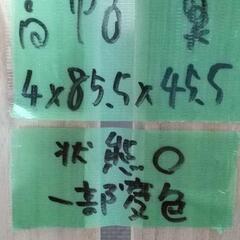 4×85.5×45.5
状態○
一部変色